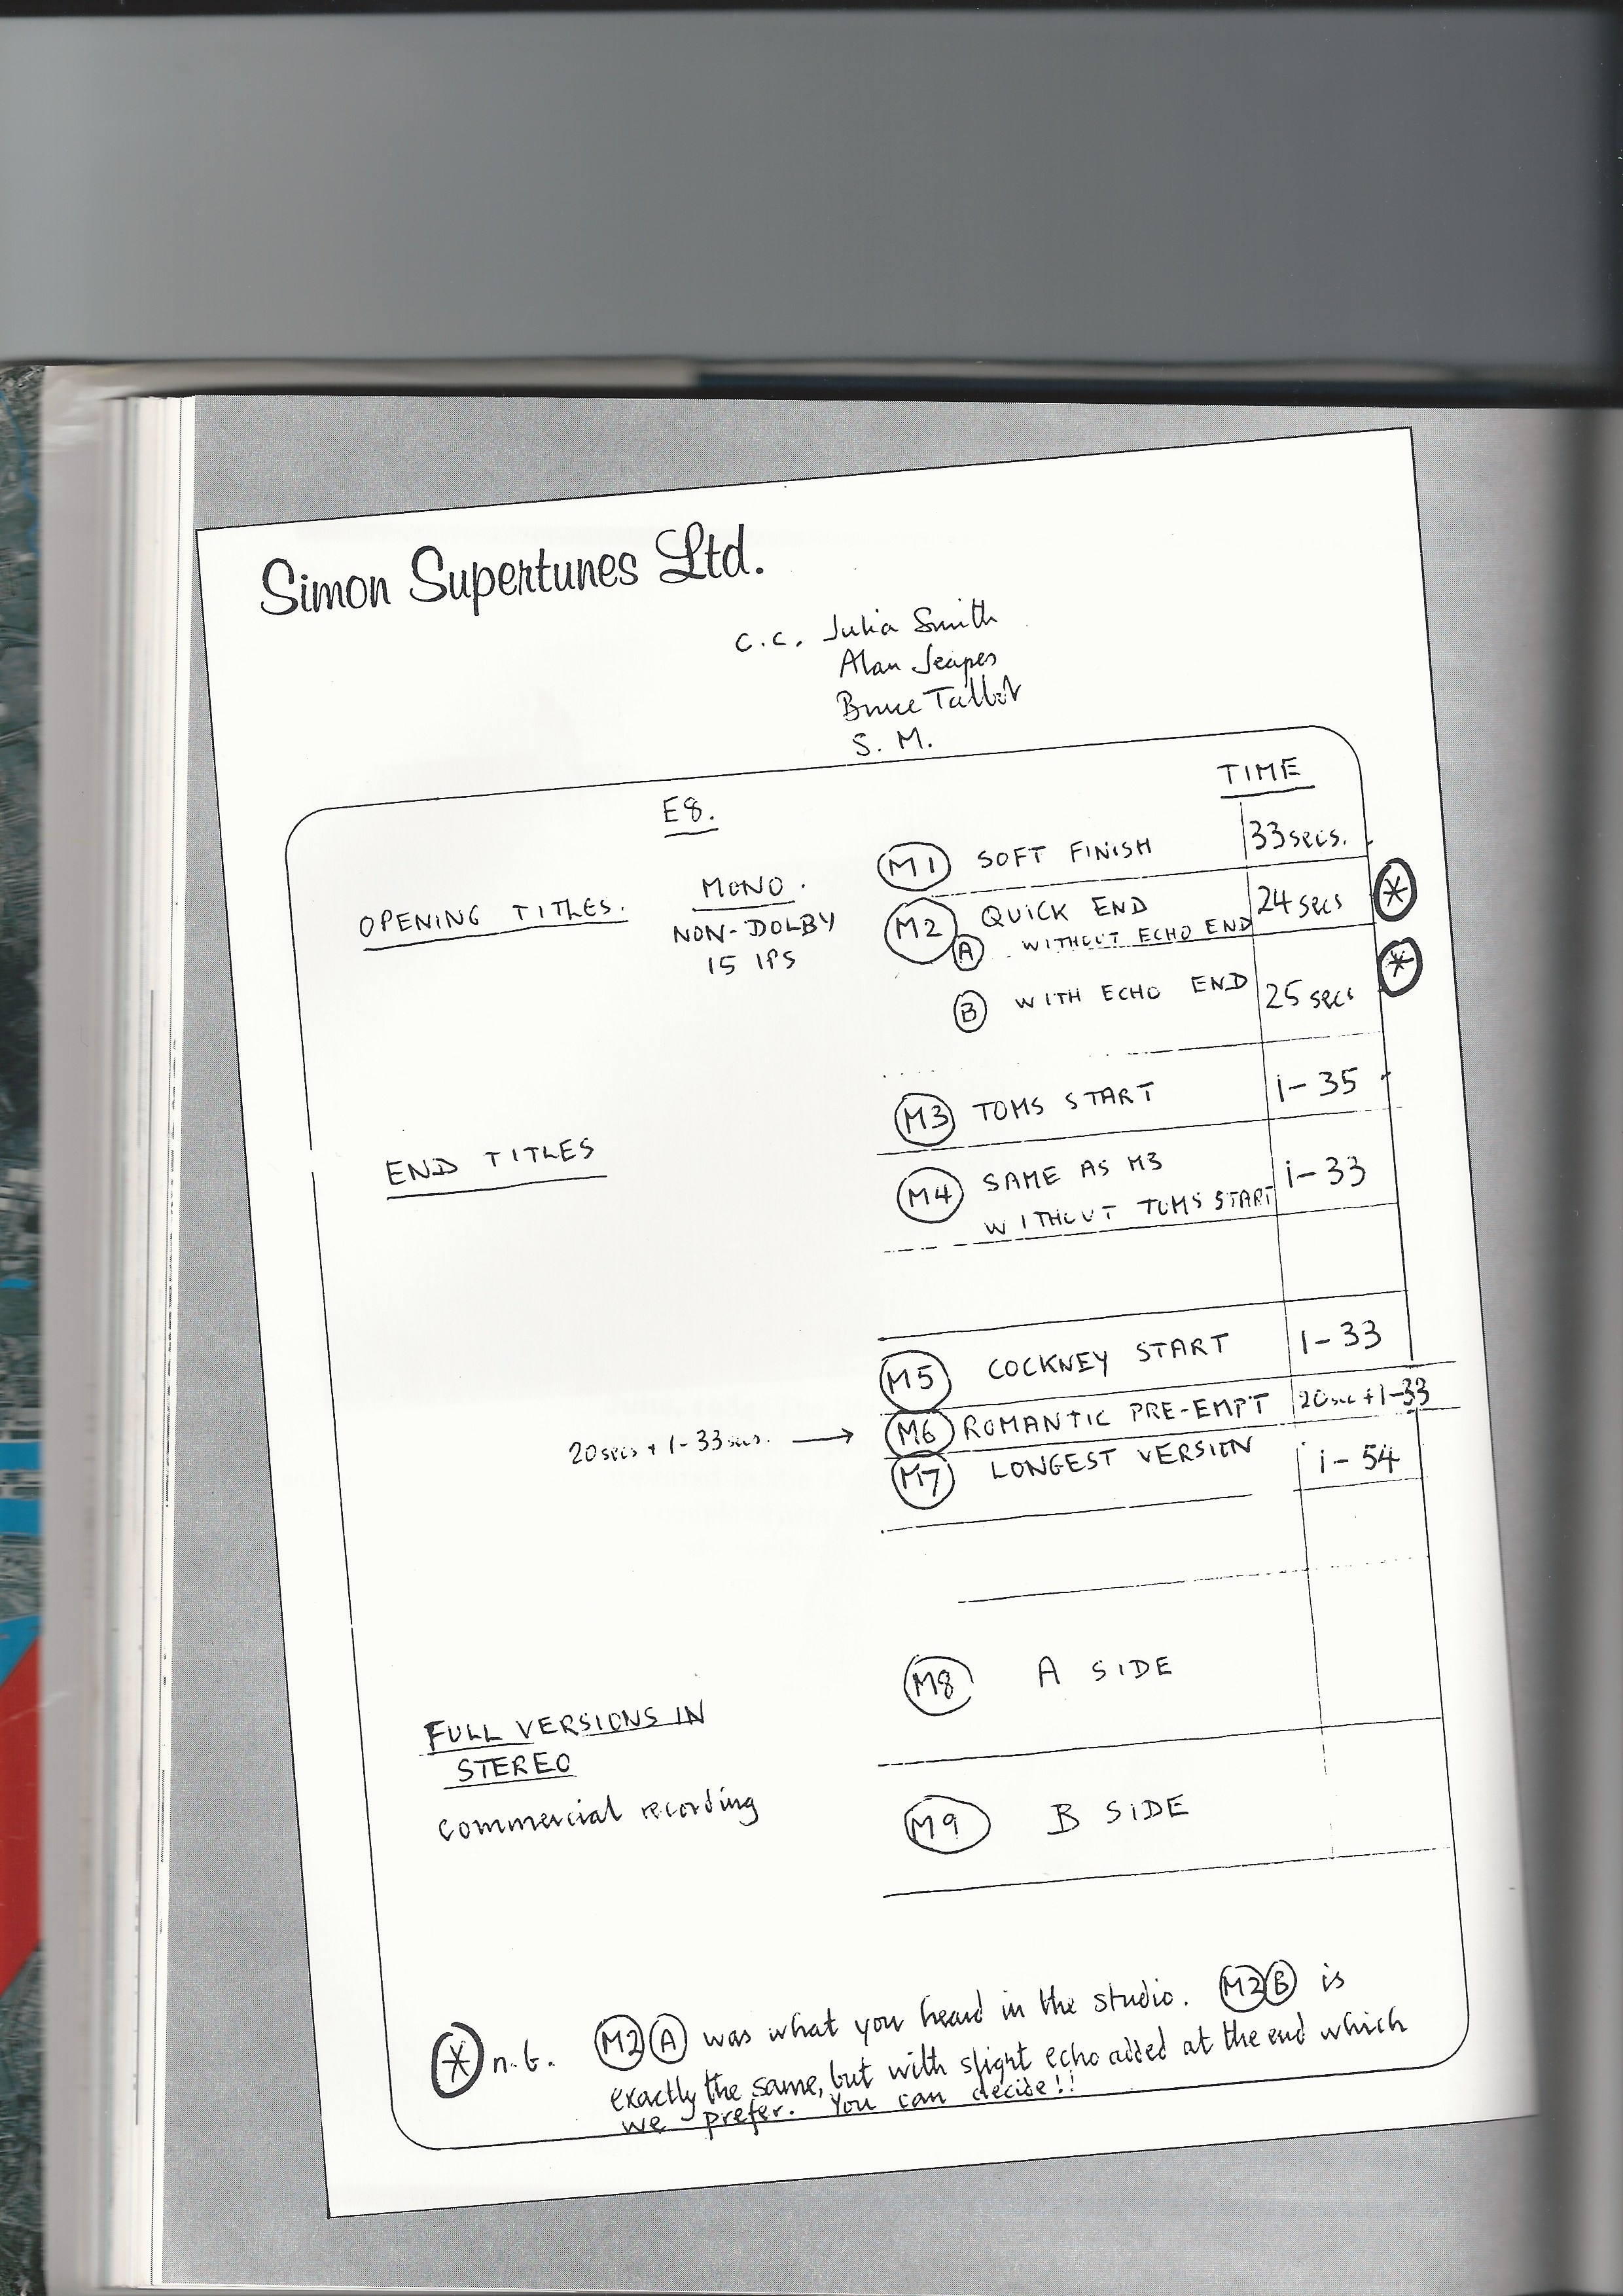 Simon Supertunes Ltd.
c.c. Julia Smith
Alan Jeapes
Bruce Talbot
S. M.
TIME
E8.
M1 SOFT FINISH 33 secs.
OPENING TITLES. MONO.
NON-DOLBY
15 IPS
M2 QUICK END 24 secs *
A WITHOUT ECHO END
B WITH ECHO END 25 secs *
M3 TOMS START 1-35
END TITLES
M4 SAME AS M3 1-33
WITHOUT TOMS START
M5 COCKNEY START 1-33
20 secs + 1-33 secs. → M6 ROMANTIC PRE-EMPT 20 sec + 1-33
M7 LONGEST VERSION 1-54
M8 A SIDE
FULL VERSIONS IN
STEREO
commercial recording
M9 B SIDE
* n.b. M2 A was what you heard in the studio. M2 B is
exactly the same, but with slight echo added at the end which
we prefer. You can decide!!